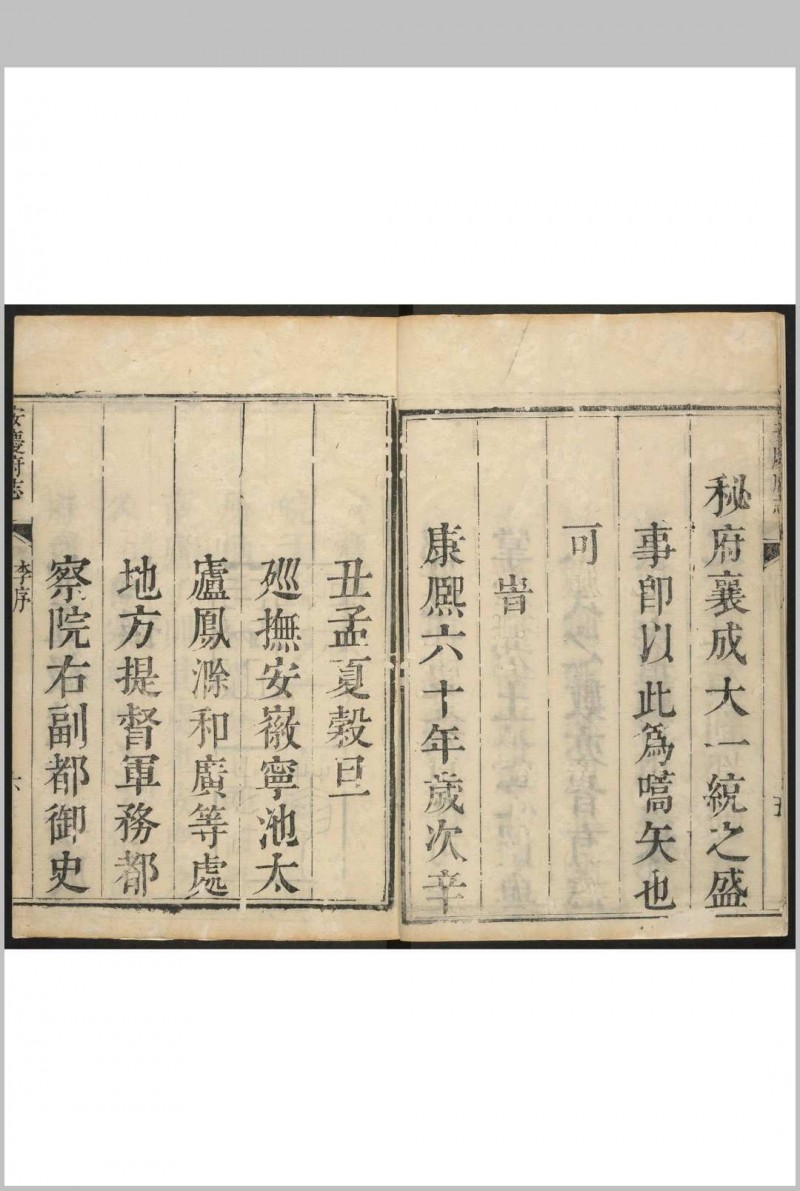 秘府襄成大一統之盛
事卽以此為嚆矢也
可
旹
康熈六十年歲次辛
丑孟夏穀旦
廵撫安徽寧池太
廬鳳滁和廣等處
地方提督軍務都
察院右副都御史
安慶府志
李序
六